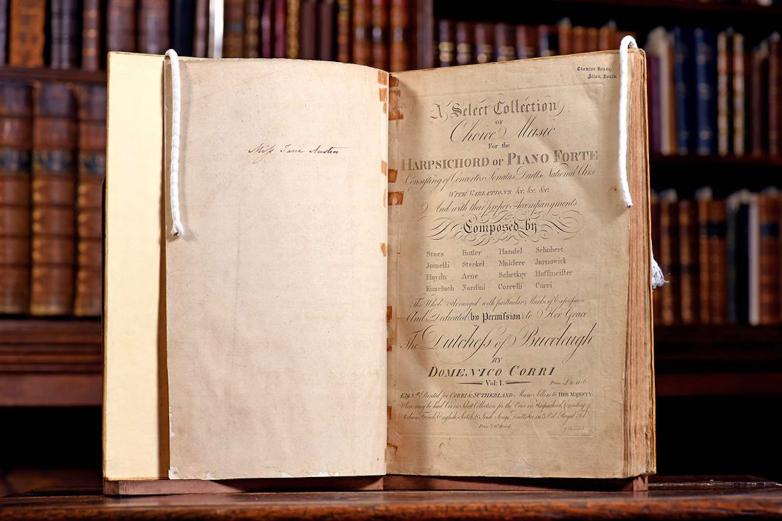 Miss Jane Austen
A Select Collection
OF
Choice Music
For the
HARPSICHORD or PIANO FORTE
Consisting of Concertos Sonatas Duetts National Airs
WITH VARIATIONS &c. &c. &c.
And with their proper Accompanyments
Composed by
Staes Butler Handel Schobert
Jomelli Sterkel Maldere Jarnowick
Haydn Arne Schetkey Hoffmeister
Nardini Corelli Corri
The Whole Arranged with particular Marks of Expression
And Dedicated by Permission to Her Grace
The Dutchess of Buccleugh
BY
DOMENICO CORRI
Vol: I.
Printed for CORRI & SUTHERLAND Music Sellers to HER MAJESTY